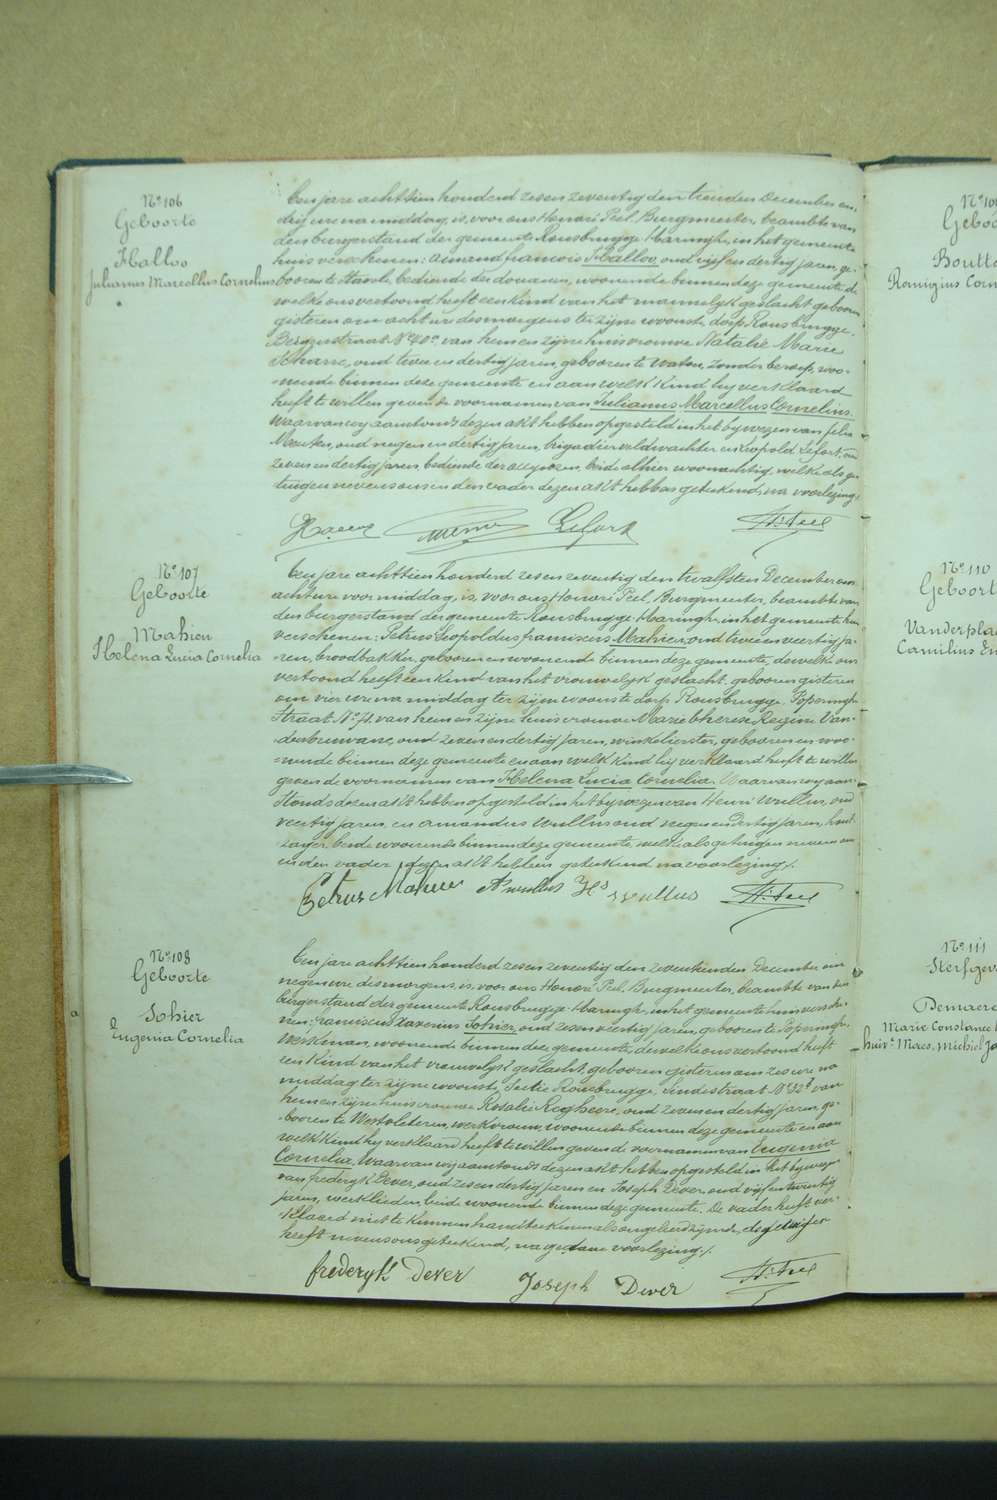 Nº 106
Geboorte
Halloo
Julianus Marcellus Cornelius
Een jare achttien honderd zes en zeventig den tienden December om
drij ure na middag, is, voor ons Honoré Peel, Burgmeester, beambte van
den burgerstand der gemeente Rousbrugge-Haringhe, in het gemeente
huis verschenen: Amand françois Halloo, oud vijf en dertig jaren, ge-
boren te Stavele, bediende der douanen, woonende binnen deze gemeente, de
welke ons vertoond heeft een kind van het mannelijk geslacht, geboren
gisteren om acht ure des morgens ter zijne woonste, dorp Rousbrugge,
Bergenstraat Nº 40, van hem en zijne huisvrouwe Natalie Marie
oud twee en dertig jaren, geboren te Watou, zonder beroep, woo-
nende binnen deze gemeente en aan welk kind hij verklaard
heeft te willen geven de voornamen van Julianus Marcellus Cornelius.
Waarvan wij aanstonds dezen akt hebben opgesteld in het bijwezen van felix
oud negen en dertig jaren, brigadier veldwachter en Leopold Lefort, oud
zes en dertig jaren, bediende der accijnzen, beide alhier woonachtig, welke als ge-
tuigen nevens ons en den vader dezen akt hebben geteekend, na voorlezing.
Lefort Hre Peel
Nº 107
Geboorte
Mahieu
Helena Lucia Cornelia
Een jare achttien honderd zes en zeventig den twalfsten December om
acht ure voor middag, is, voor ons Honoré Peel, Burgmeester, beambte van
den burgerstand der gemeente Rousbrugge-Haringhe, in het gemeente huis
verschenen: Petrus Leopoldus franciscus Mahieu, oud twee en veertig ja-
ren, broodbakker, geboren en woonende binnen deze gemeente, dewelk ons
vertoond heeft een kind van het vrouwelijk geslacht, geboren gisteren
om vier ure na middag ter zijne woonste dorp Rousbrugge, Poperingh-
straat Nº 71, van hem en zijne huisvrouwe Marie Therese Regine Van-
oud zeven en dertig jaren, winkelierster, geboren en woo-
nende binnen deze gemeente en aan welk kind hij verklaard heeft te willen
geven de voornamen van Helena Lucia Cornelia. Waarvan wij aan-
stonds dezen akt hebben opgesteld in het bijwezen van Henri Wullus, oud
veertig jaren, en Amandus Wullus oud negen en dertig jaren, hout-
zager, beide woonende binnen deze gemeente, welke als getuigen nevens ons
en den vader dezen akt hebben geteekend na voorlezing.
Petrus Mahieu A Wullus Hi Wullus Hre Peel
Nº 108
Geboorte
Sohier
Eugenia Cornelia
Een jare achttien honderd zes en zeventig den zeventienden December om
negen ure des morgens, is, voor ons Honoré Peel, Burgmeester, beambte van den
burgerstand der gemeente Rousbrugge-Haringh, in het gemeente huis versche-
nen: franciscus Xaverius Sohier, oud zes en veertig jaren, geboren te Poperingh,
werkman, woonende binnen deze gemeente, dewelke ons vertoond heeft
een kind van het vrouwelijk geslacht, geboren gisteren om zes ure na
middag ter zijne woonste, sectie Rousbrugge, Lindestraat Nº 12, van
hem en zijne huisvrouwe Rosalie Reghere, oud zeven en dertig jaren, ge-
boren te Westvleteren, werkvrouw, woonende binnen deze gemeente en aan
welk kind hij verklaard heeft te willen geven de voornamen van Eugenia
Cornelia. Waarvan wij aanstonds dezen akt hebben opgesteld in het bijwezen
van frederyk Dever, oud zes en dertig jaren en Joseph Dever, oud vijf en twintig
jaren, werklieden, beide woonende binnen deze gemeente. De vader heeft ver-
klaard niet te kunnen handteekenen als ongeleerd zijnde, de getuigen
heeft nevens ons geteekend, na gedane voorlezing.
frederyk Dever Joseph Dever Hre Peel
Geboo
Boutte
Remigius Corn
Nº 110
Geboort
Vanderpla
Camilius
Nº 111
Sterfgev
Demaere
Marie Constance
huisv. Maes, Michiel